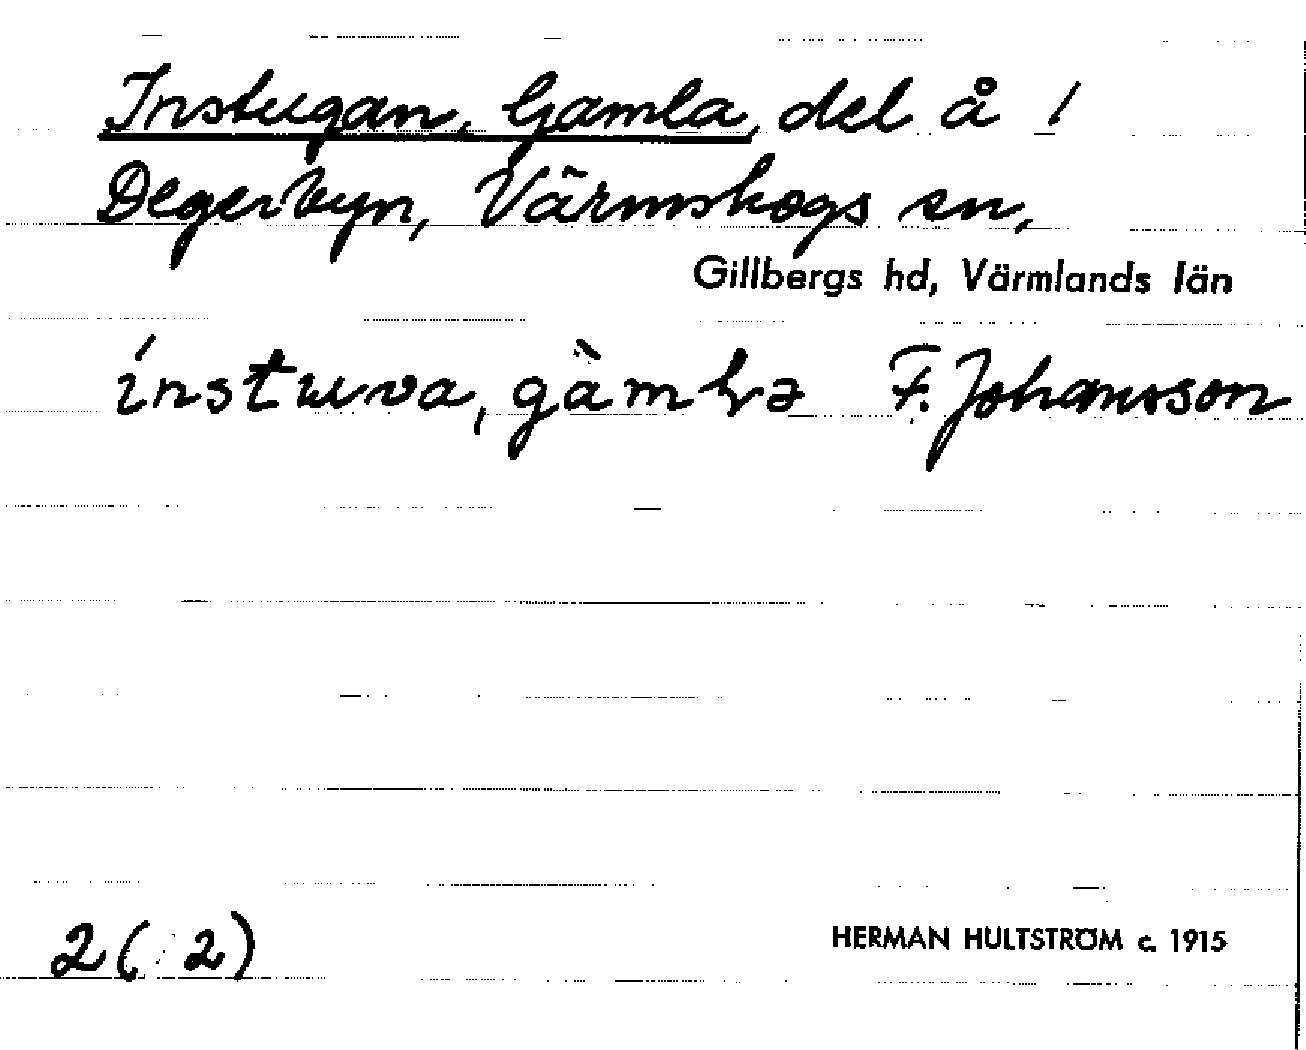 Instugan, Gamla, del å /
Degerbyn, Värmskogs sn,
Gillbergs hd, Värmlands län
ínstuva, gàmḷɿə F. Johansson
2(2)
HERMAN HULTSTRÖM c. 1915